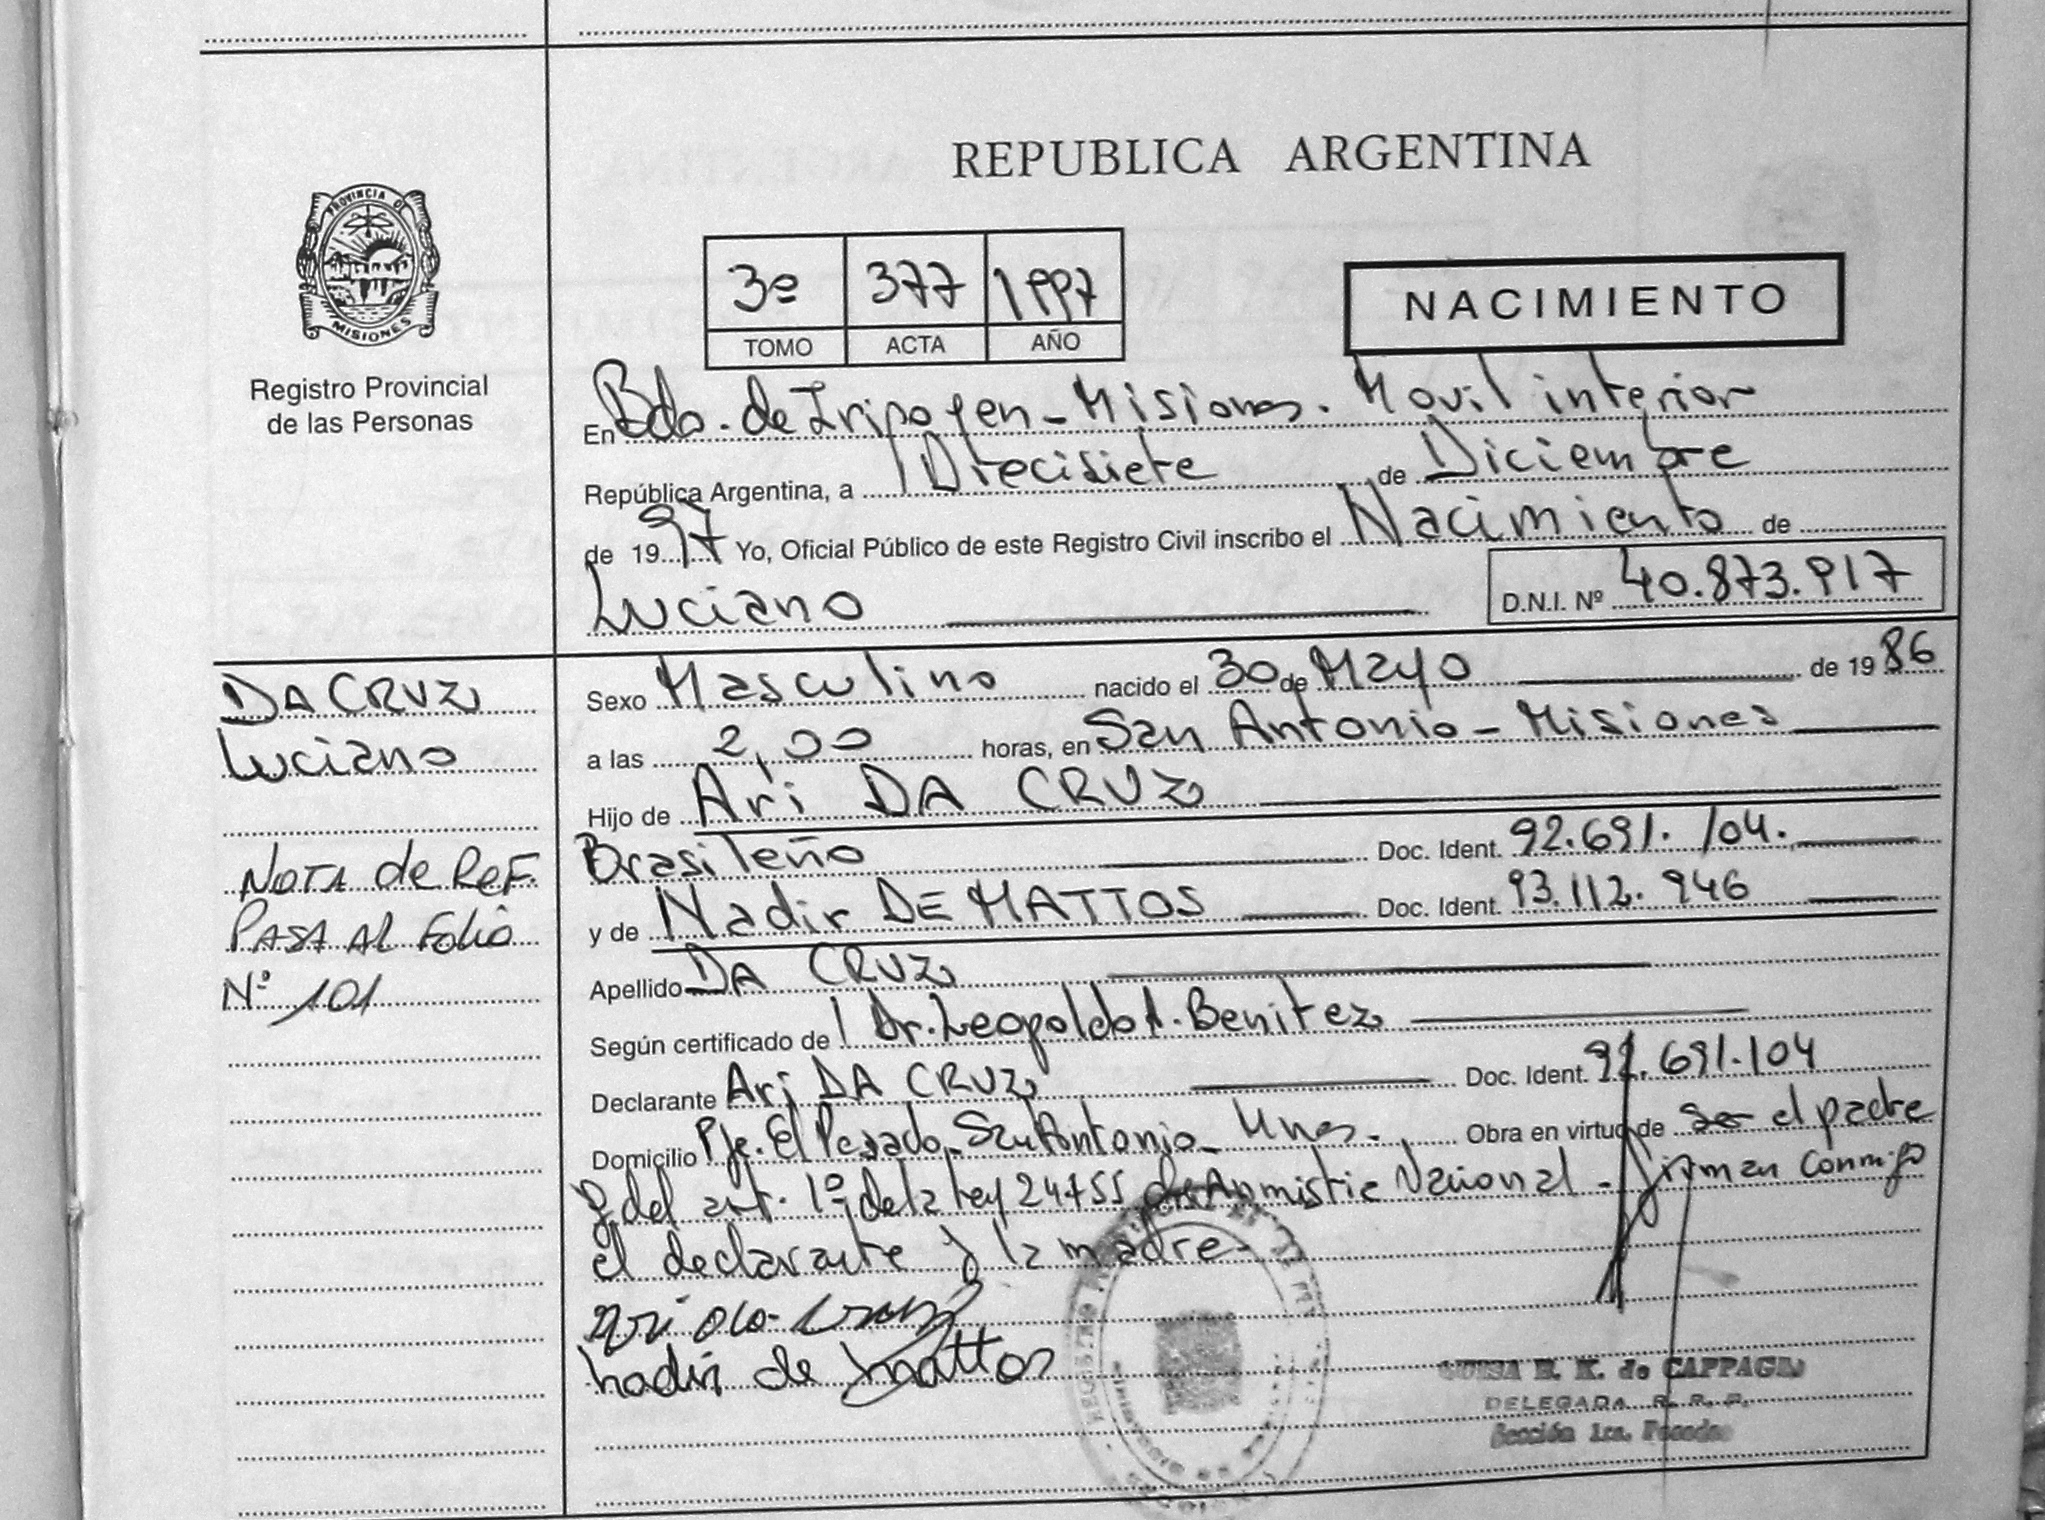 REPUBLICA ARGENTINA
PROVINCIA DE
MISIONES
Registro Provincial
de las Personas
3º 377 1997
TOMO ACTA AÑO
NACIMIENTO
En Bdo. de Irigoyen - Misiones. Movil interior
República Argentina, a Diecisiete de Diciembre
de 1997 Yo, Oficial Público de este Registro Civil inscribo el Nacimiento de
Luciano D.N.I. Nº 40.873.917
DA CRUZ
Luciano
NOTA de REF.
PASA AL Folio
Nº 101
Sexo Masculino nacido el 30 de Mayo de 1986
a las 2,00 horas, en San Antonio - Misiones
Hijo de Ari DA CRUZ
Brasileño Doc. Ident. 92.691.104.
y de Nadir DE MATTOS Doc. Ident. 93.112.946
Apellido DA CRUZ
Según certificado de Dr. Leopoldo A. Benitez
Declarante Ari DA CRUZ Doc. Ident. 92.691.104
Domicilio Pje. El Pesado - San Antonio - Mnes. Obra en virtud de ser el padre
y del art. 1º de la ley 24755 de Anmistie Nacional - firman conmigo
el declarante y la madre -
Ari da Cruz
nadir de mattos
LUISA E. K. de CAPPAGLI
DELEGADA R. R. P.
Sección 1ra. Posadas